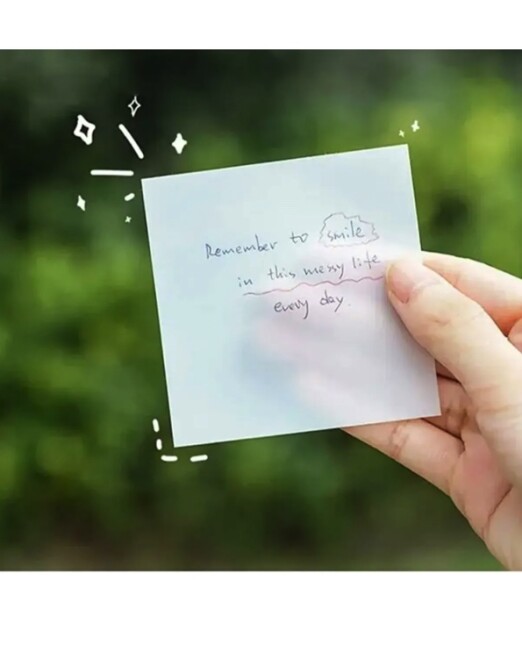 Remember to smile
in this messy life
every day.